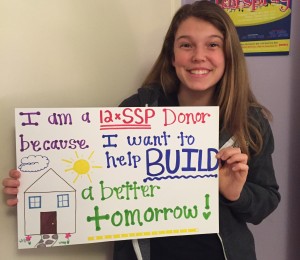 I am a 12xSSP Donor
because I want to
help BUILD
a better
tomorrow!